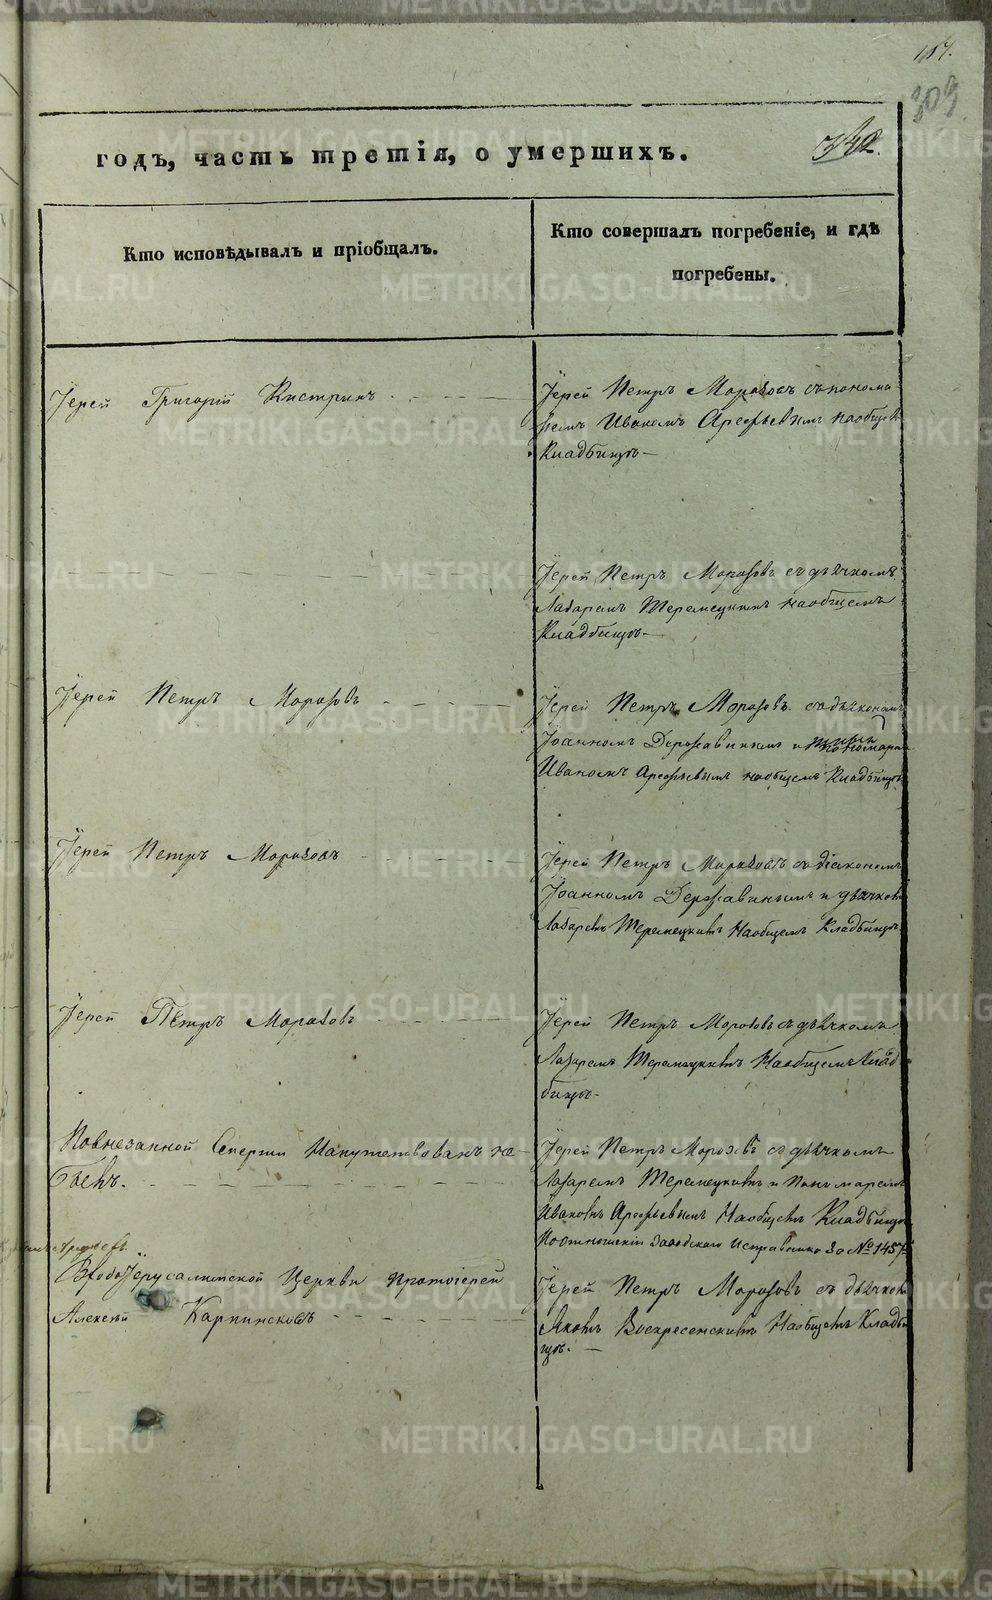 157.
309
342.
годъ, часть третія, о умершихъ.
Кто исповѣдывалъ и пріобщалъ.
Кто совершалъ погребеніе, и гдѣ
погребены.
Іерей Григорій Кистринъ
Іерей Петръ Морозовъ съ понома-
ремъ Иваномъ Арефьевымъ на общемъ
Кладбищѣ
Іерей Петръ Морозовъ съ дьячкомъ
Лазаремъ Теремецкимъ на общемъ
Кладбищѣ
Іерей Петръ Морозовъ
Іерей Петръ Морозовъ съ дьякономъ
Іоанномъ Державинымъ и пономаремъ
Иваномъ Арефьевымъ на общемъ Кладбищѣ
Іерей Петръ Морозовъ
Іерей Петръ Морозовъ съ діакономъ
Іоанномъ Державинымъ и дьячкомъ
Лазаремъ Теремецкимъ На общемъ Кладбищѣ
Іерей Петръ Морозовъ
Іерей Петръ Морозовъ съ дьячкомъ
Лазаремъ Теремецкимъ На общемъ Клад-
бищѣ.
По внезапной Смерти Напутствованъ не
былъ.
Іерей Петръ Морозовъ съ дьячкомъ
Лазаремъ Теремецкимъ и Понамаремъ
Иваномъ Арефьевымъ На общемъ Кладбищѣ
По отношенію Заводскаго Исправника За № 1457
Входоіерусалимской Церкви протоіерей
Алексѣй Карпинскій
Іерей Петръ Морозовъ съ дьячкомъ
Яковомъ Воскресенскимъ На общемъ Кладби-
щѣ.
METRIKI.GASO-URAL.RU